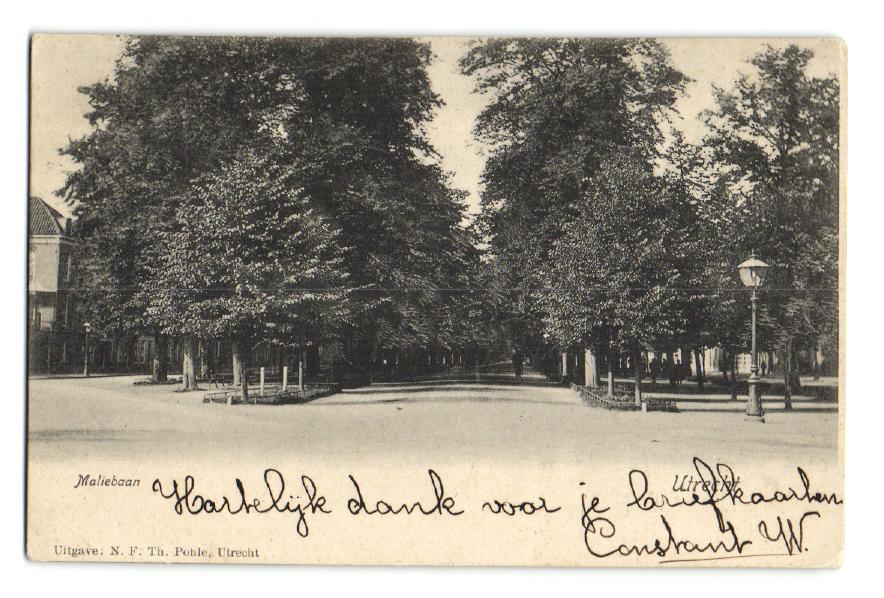 Maliebaan
Utrecht
Hartelijk dank voor je briefkaarten
Constant W.
Uitgave: N. F. Th. Pohle, Utrecht